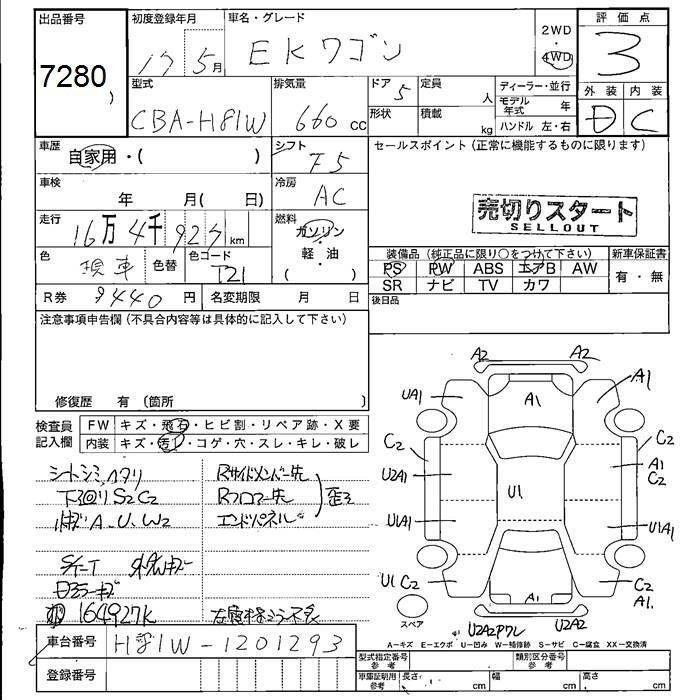 出品番号 初度登録年月 車名・グレード 評価点
7280 17年 5月 EKワゴン 2WD 4WD 3
型式 排気量 ドア 5 定員 人 ディーラー・並行 外装 内装
CBA-H81W 660 cc 形状 積載 kg モデル年式 年 D C
ハンドル 左・右
車歴 自家用・( ) シフト F5 セールスポイント (正常に機能するものに限ります)
車検 年 月( 日) 冷房 AC
走行 16万4千927km 燃料 ガソリン・軽・油 ( ) 売切りスタート
SELLOUT
色 検車 色替 色コード T21 装備品 (純正品に限り○をつけて下さい) 新車保証書
PS PW ABS エアB AW 有・無
R券 9440円 名変期限 月 日 SR ナビ TV カワ
後日品
注意事項申告欄 (不具合内容等は具体的に記入して下さい)
修復歴 有 (箇所 )
検査員記入欄 FW キズ・飛石・ヒビ割・リペア跡・X要
内装 キズ・汚レ・コゲ・穴・スレ・キレ・破レ
シートシミ, ハタリ Rサイドメンバー先
下回リ S2C2 Rフロアー先 歪ミ
A、U、W2 エンドパネル
164927K
車台番号 H81W-1201293
登録番号
A2 A2
UA1 A1 A1
C2 C2
U2A1 U1 A1 C2
U1A1 U1A1
U1 C2 A1 C2 A1.
スペア U2A2 ワレ U2A2
A-キズ E-エクボ U-凹み W-補修跡 S-サビ C-腐食 XX-交換済
型式指定番号 参考 類別区分番号 参考
車庫証明用 参考 長さ cm 幅 cm 高さ cm